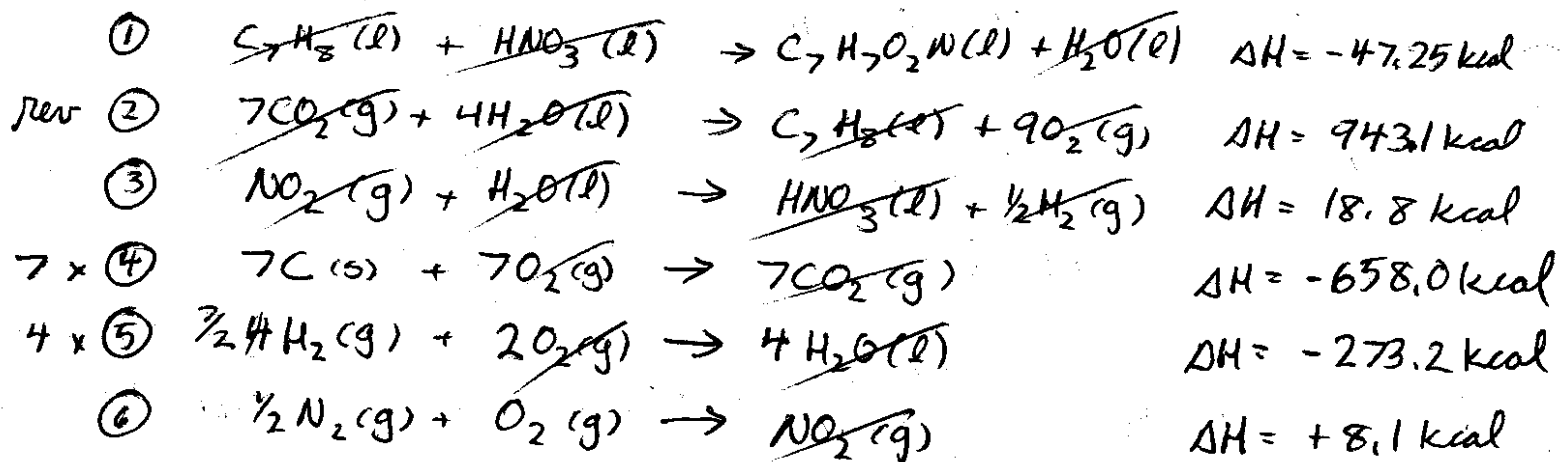 ① C₇H₈(l) + HNO₃(l) → C₇H₇O₂N(l) + H₂O(l) ΔH = -47.25 kcal
rev ② 7CO₂(g) + 4H₂O(l) → C₇H₈(l) + 9O₂(g) ΔH = 943.1 kcal
③ NO₂(g) + H₂O(l) → HNO₃(l) + ½H₂(g) ΔH = 18.8 kcal
7 x ④ 7C(s) + 7O₂(g) → 7CO₂(g) ΔH = -658.0 kcal
4 x ⑤ 7/2 4H₂(g) + 2O₂(g) → 4H₂O(l) ΔH = -273.2 kcal
⑥ ½N₂(g) + O₂(g) → NO₂(g) ΔH = +8.1 kcal